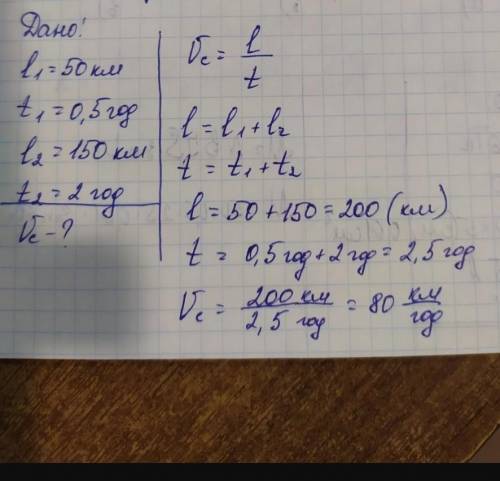 Дано!
l₁ = 50 км
t₁ = 0,5 год
l₂ = 150 км
t₂ = 2 год
Vc - ?
Vc = l / t
l = l₁ + l₂
t = t₁ + t₂
l = 50 + 150 = 200 (км)
t = 0,5 год + 2 год = 2,5 год
Vc = 200 км / 2,5 год = 80 км / год